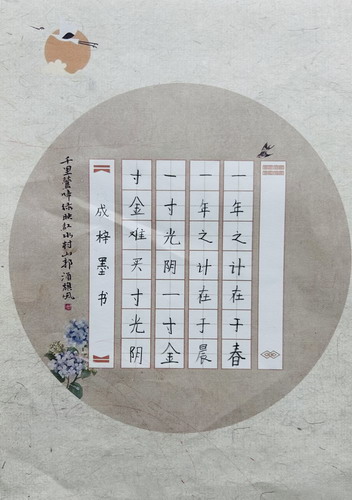 一年之计在于春
一年之计在于晨
一寸光阴一寸金
寸金难买寸光阴
成梓墨书
千里莺啼绿映红水村山郭酒旗风